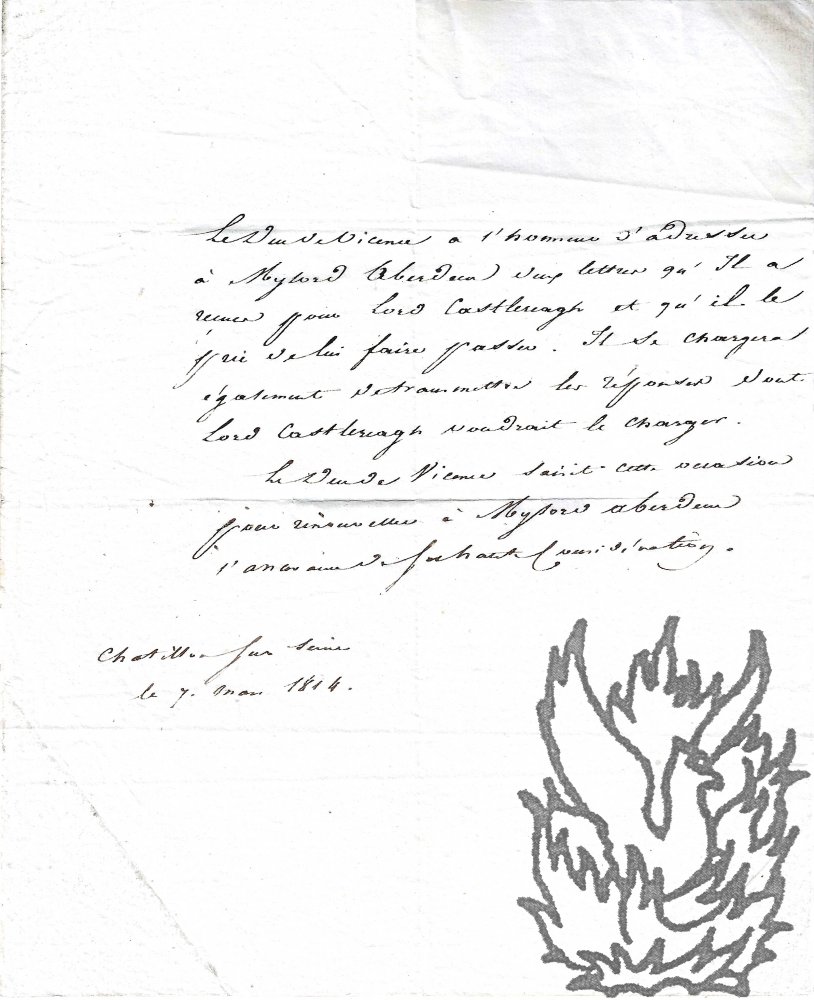 Le Duc de Vicence a l'honneur d'adresser
à Mylord Aberdeen deux lettres qu'Il a
reçues pour Lord Castlereagh et qu'il le
prie de lui faire passer. Il se chargera
également de transmettre les réponses dont
Lord Castlereagh voudrait le charger.
Le Duc de Vicence saisit cette occasion
pour renouveller à Mylord Aberdeen
l'assurance de sa haute Considération.
Chatillon sur Seine
le 7. mars 1814.